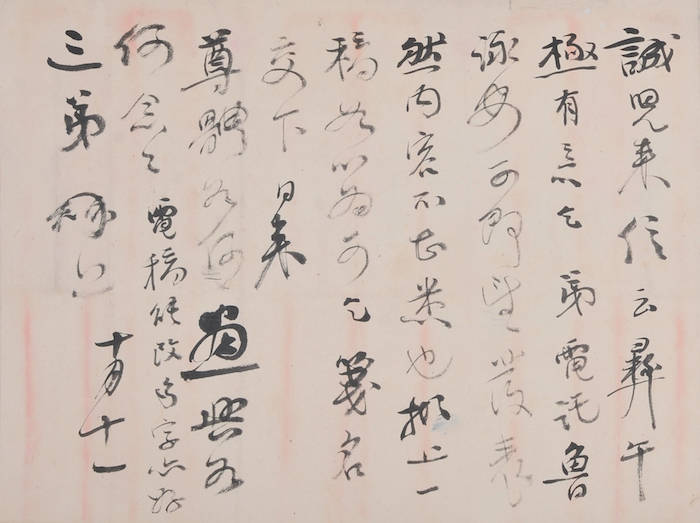 誠兄来信云彝午
極有意乞弟電託魯
可即發表
然内容不甚悉也擬上一
稿如以為可乞簽名
交下日来
尊體如何畫興如
何念々電稿能改字亦好
三弟
十月十一